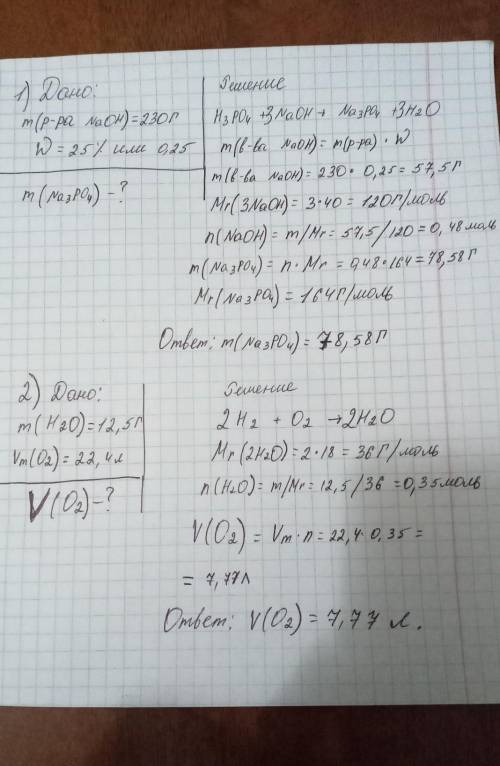 1) Дано:
m(р-ра NaOH)=230г
W=25% или 0,25
m(Na₃PO₄)-?
Решение
H₃PO₄+3NaOH → Na₃PO₄+3H₂O
m(в-ва NaOH)=m(р-ра)·W
m(в-ва NaOH)=230·0,25=57,5г
Mr(3NaOH)=3·40=120г/моль
n(NaOH)=m/Mr=57,5/120=0,48моль
m(Na₃PO₄)=n·Mr=0,48·164=78,58г
Mr(Na₃PO₄)=164г/моль
Ответ: m(Na₃PO₄)=78,58г
2) Дано:
m(H₂O)=12,5г
Vm(O₂)=22,4л
V(O₂)-?
Решение
2H₂ + O₂ → 2H₂O
Mr(2H₂O)=2·18=36г/моль
n(H₂O)=m/Mr=12,5/36=0,35моль
V(O₂)=Vm·n=22,4·0,35=
=7,77л
Ответ: V(O₂)=7,77 л.